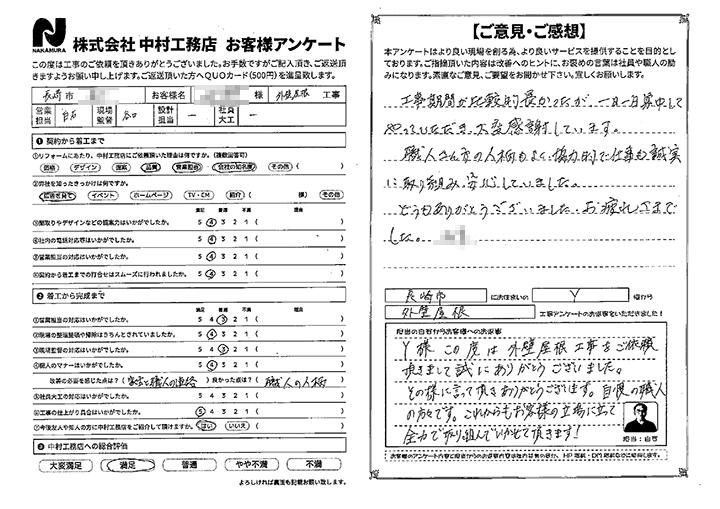 N
NAKAMURA
株式会社 中村工務店 お客様アンケート
この度は工事のご依頼を頂きありがとうございました。お手数ですがご記入頂き、ご返送頂
きますようお願い申し上げます。ご返送頂いた方へQUOカード(500円)を進呈致します。
長崎市 お客様名 様 外壁屋根 工事
営業担当 白石 現場監督 谷口 設計担当 ー 社員大工 ー
❶ 契約から着工まで
①リフォームにあたり、中村工務店にご依頼頂いた理由は何ですか。(複数回答可)
価格 デザイン 提案 品質 営業担当 会社の知名度 その他 ( )
②弊社を知ったきっかけは何ですか。
広告を見て イベント ホームページ TV・CM 紹介 ( 様) その他
満足 普通 不満 理由
③間取りやデザインなどの提案力はいかがでしたか。 5 4 3 2 1 ( )
④社内の電話対応等はいかがでしたか。 5 4 3 2 1 ( )
⑤営業担当の対応はいかがでしたか。 5 4 3 2 1 ( )
⑥契約から着工までの打合せはスムーズに行われましたか。 5 4 3 2 1 ( )
❷ 着工から完成まで
満足 普通 不満 理由
①営業担当の対応はいかがでしたか。 5 4 3 2 1 ( )
②現場の整理整頓や掃除はきちんとされていましたか。 5 4 3 2 1 ( )
③現場監督の対応はいかがでしたか。 5 4 3 2 1 ( )
④職人のマナーはいかがでしたか。 5 4 3 2 1 ( )
改善の必要を感じた点は? ( 職人の連絡 ) 良かった点は? ( 職人の人柄 )
⑤社員大工の対応はいかがでしたか。 5 4 3 2 1 ( )
⑥工事の仕上がり具合はいかがでしたか。 5 4 3 2 1 ( )
⑦今後友人や知人の方に中村工務店をご紹介して頂けますか。 はい いいえ ( )
❸ 中村工務店への総合評価
大変満足 満足 普通 やや不満 不満
よろしければ裏面も記載お願い致します。
【ご意見・ご感想】
本アンケートはより良い現場を創る為、より良いサービスを提供することを目的とし
ております。ご指摘頂いた内容は改善へのヒントに、お褒めの言葉は社員や職人の励
みになります。素直なご意見、ご要望をお聞かせ下さい。宜しくお願いします。
工事期間が比較的長かったが、一日一日集中して
やっていただき、大変感謝しています。
職人さん方の人柄もよく、協力的で仕事も誠実
に取り組み、安心していました。
どうもありがとうございました。お疲れさまで
した。
長崎市 にお住いの Y 様から
外壁屋根 工事アンケートのお返事をいただきました!
担当の白石からお客様へのお返事
Y様 この度は外壁屋根工事をご依頼
頂きまして誠にありがとうございました。
その様に言って頂きありがとうございます。自慢の職人
の方々です。これからもお客様の立場に立って
全力で取り組んでいかせて頂きます!
担当:白石